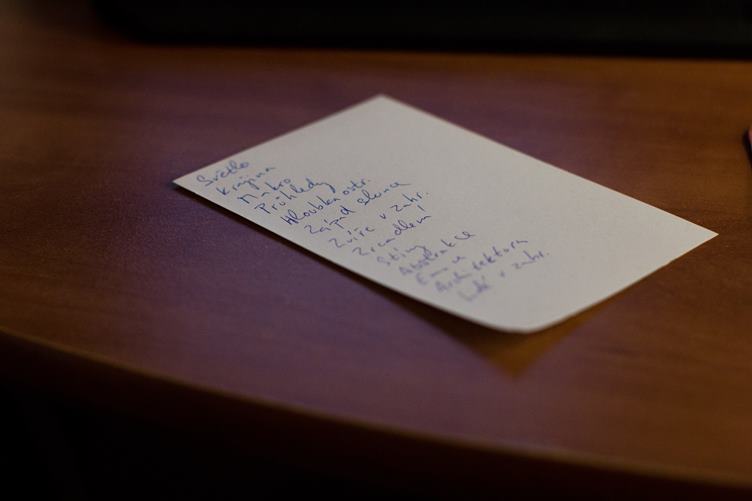 Světlo
Krajina
Makro
Průhledy
Hloubka ostr.
Západ slunce
Zvíře v zahr.
Zrcadlem
Stíny
Abstrakce
Emoce
Architektura
Lidé v zahr.